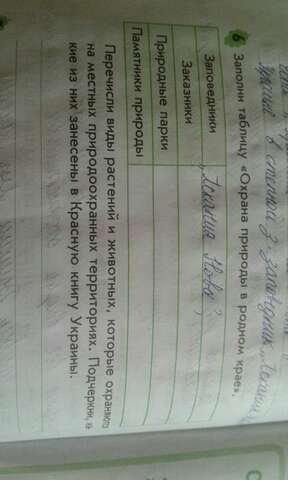 в степной заповедник
6 Заполни таблицу «Охрана природы в родном крае».
Заповедники „Аскания Нова"
Заказники
Природные парки
Памятники природы
Перечисли виды растений и животных, которые охраняются
на местных природоохранных территориях. Подчеркни, ка-
кие из них занесены в Красную книгу Украины.